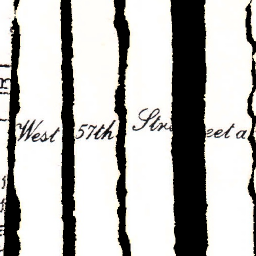 West 57th Street a